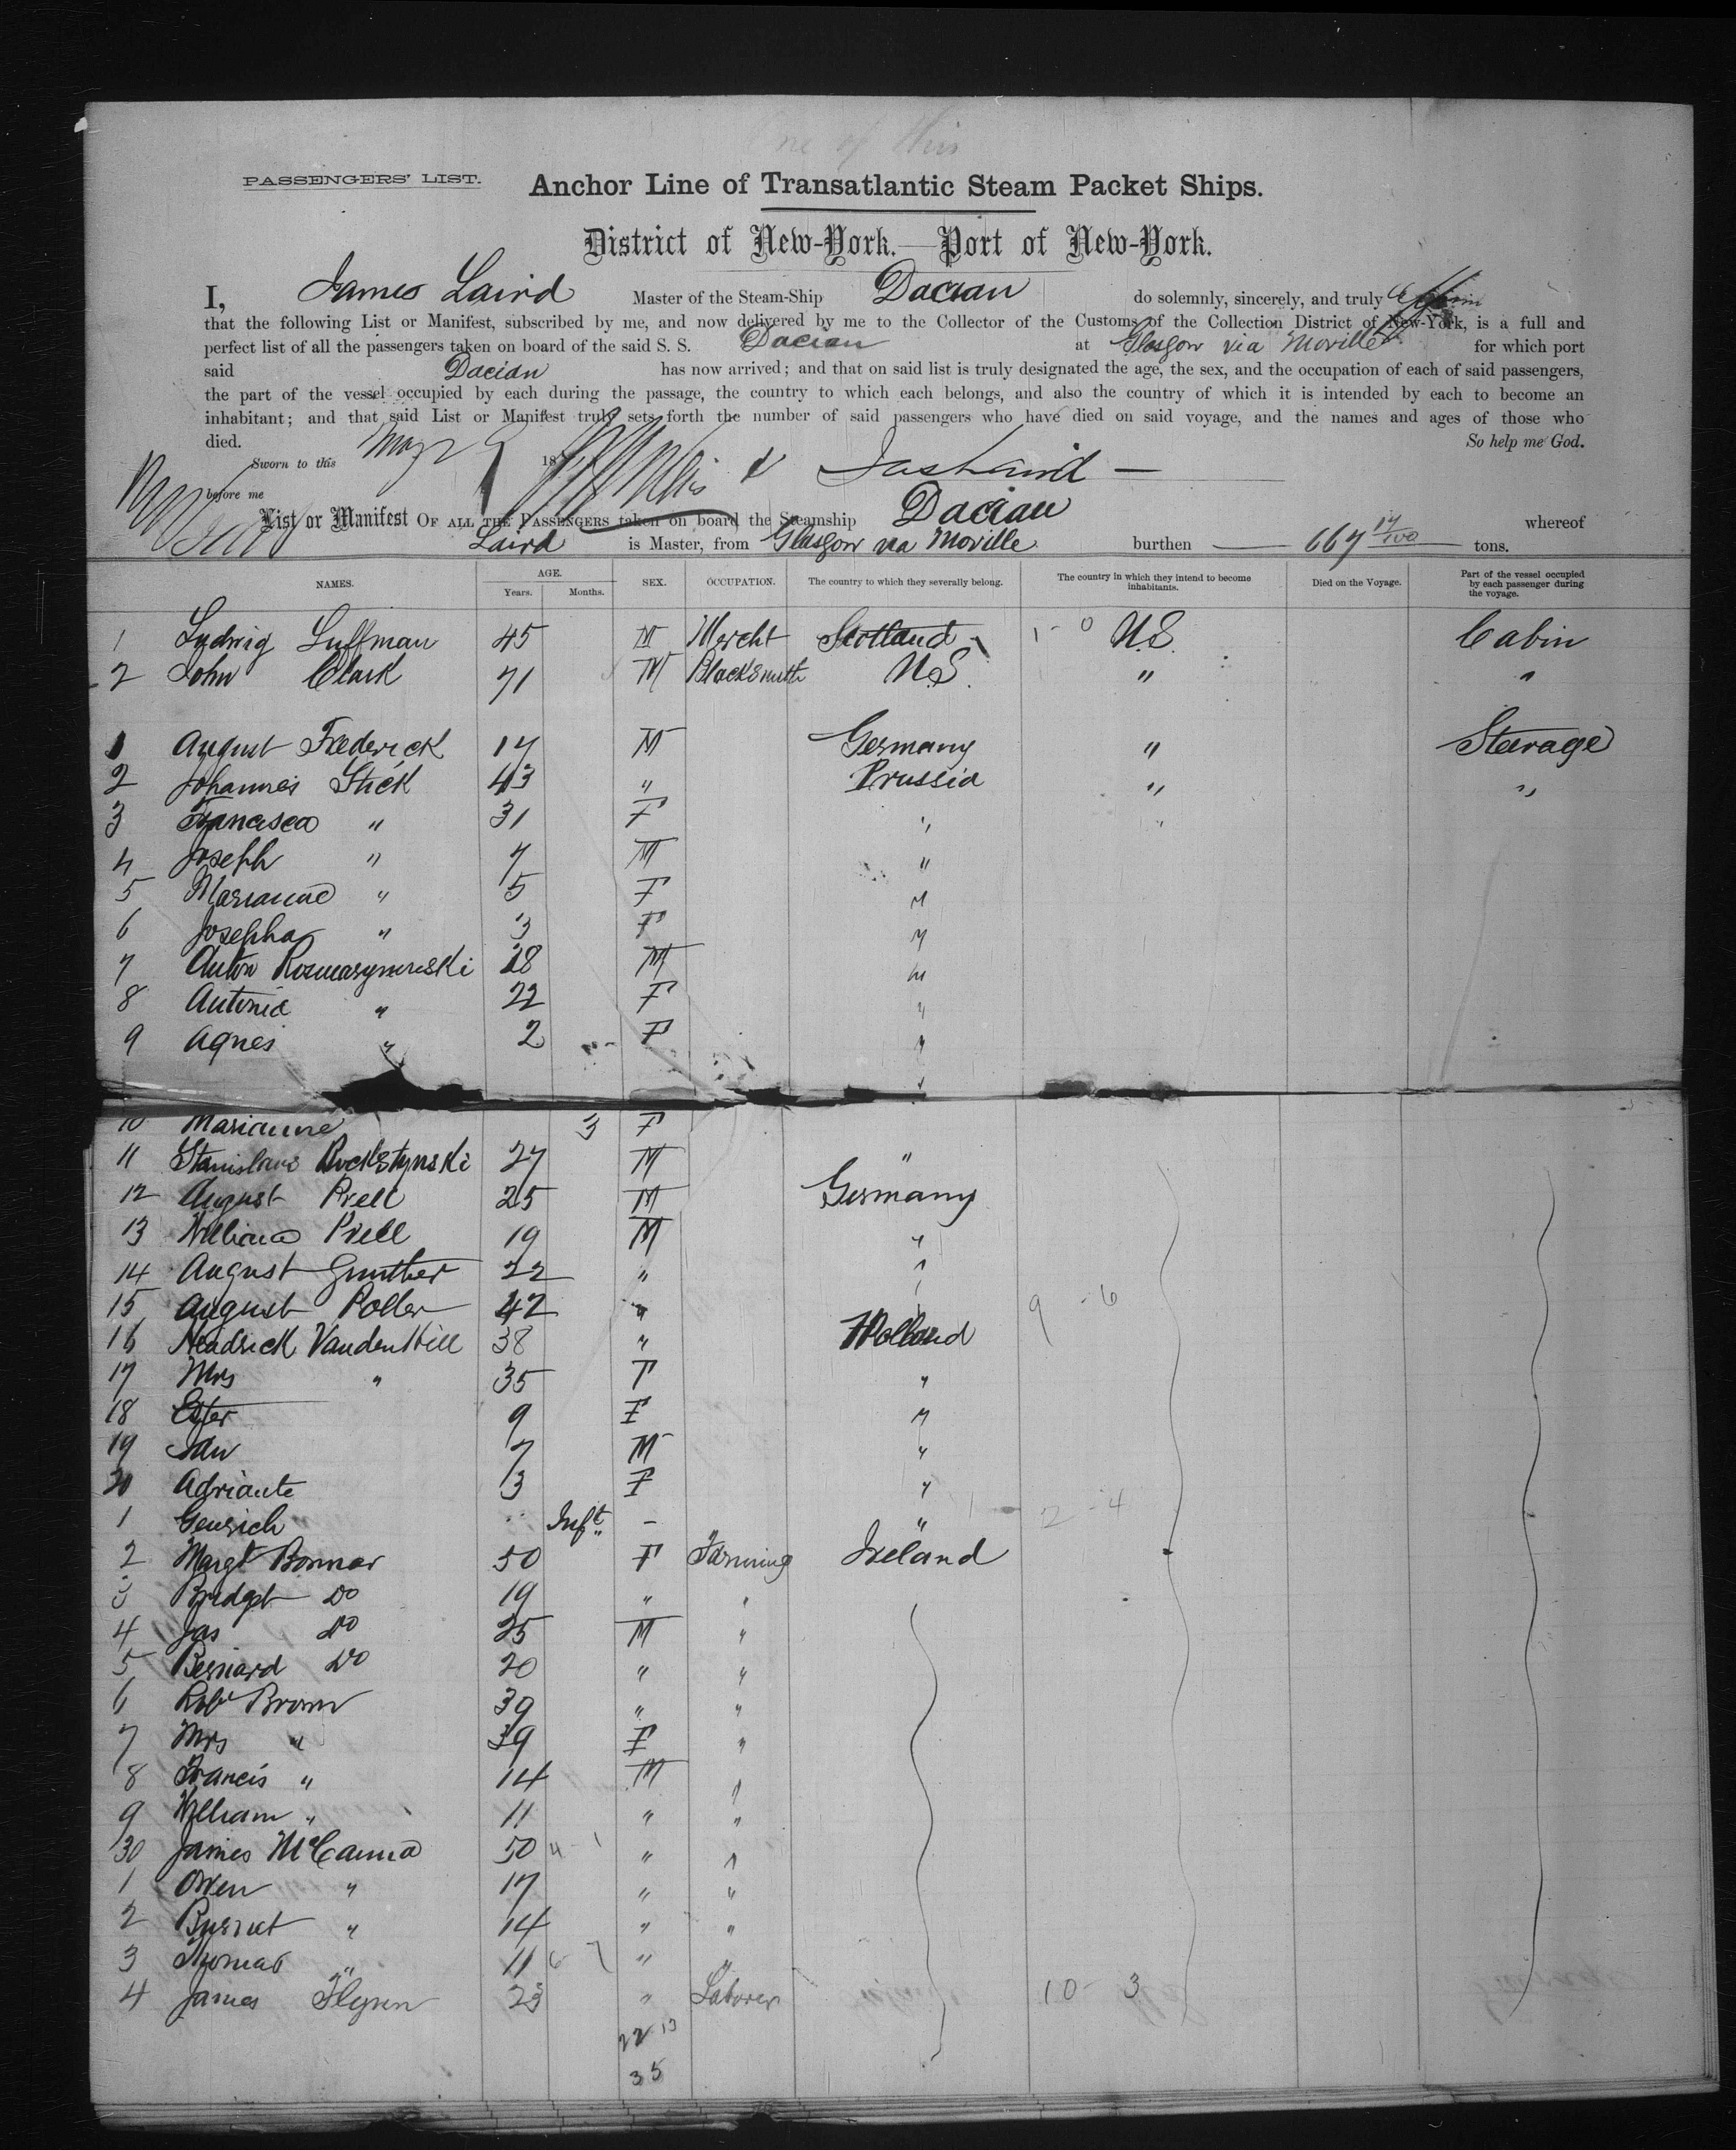 One of this
PASSENGERS' LIST.
Anchor Line of Transatlantic Steam Packet Ships.
District of New-York.—Port of New-York.
I, James Laird Master of the Steam-Ship Dacian do solemnly, sincerely, and truly
that the following List or Manifest, subscribed by me, and now delivered by me to the Collector of the Customs of the Collection District of New-York, is a full and
perfect list of all the passengers taken on board of the said S. S. Dacian at Glasgow via Moville for which port
said Dacian has now arrived; and that on said list is truly designated the age, the sex, and the occupation of each of said passengers,
the part of the vessel occupied by each during the passage, the country to which each belongs, and also the country of which it is intended by each to become an
inhabitant; and that said List or Manifest truly sets forth the number of said passengers who have died on said voyage, and the names and ages of those who
died. So help me God.
Sworn to this May 9 187 Jas Laird —
before me
List or Manifest OF ALL THE PASSENGERS taken on board the Steamship Dacian whereof
Laird is Master, from Glasgow via Moville burthen 667 17/100 tons.
NAMES. AGE. Years. Months. SEX. OCCUPATION. The country to which they severally belong. The country in which they intend to become inhabitants. Died on the Voyage. Part of the vessel occupied by each passenger during the voyage.
1 Ludwig Luffman 45 M Mercht Scotland 1 - 0 U.S. Cabin
2 John Clark 71 M Blacksmith U.S. " "
1 August Frederick 17 M Germany " Steerage
2 Johannes Stick 43 " Prussia " "
3 Francisca " 31 F " "
4 Joseph " 7 M "
5 Marianna " 5 F "
6 Josepha " 3 F "
7 Anton 28 M "
8 Antonia " 22 F "
9 Agnes " 2 F "
10 Marianne 3 F
11 27 M "
12 August Prell 25 M Germany
13 Prell 19 M "
14 August Gunther 22 " "
15 August Poller 42 " 9 - 6
16 Hendrick VandenHill 38 " Holland
17 Mrs " 35 F "
18 Ester 9 F "
19 Jan 7 M "
20 Adriante 3 F "
1 Genrich Inft - " 1 - 2 - 4
2 Margt Bonnar 50 F Farming Ireland
3 Bridget Do 19 " "
4 Jas Do 25 M "
5 Bernard Do 20 " "
6 Robt Brown 39 " "
7 Mrs " 39 F "
8 Francis " 14 M "
9 William " 11 " "
30 James McCanna 50 4 - 1 " "
1 Owen " 17 " "
2 " 14 " "
3 Thomas " 11 6 7 " "
4 James Flynn 23 " Laborer 10 - 3
22 13
35